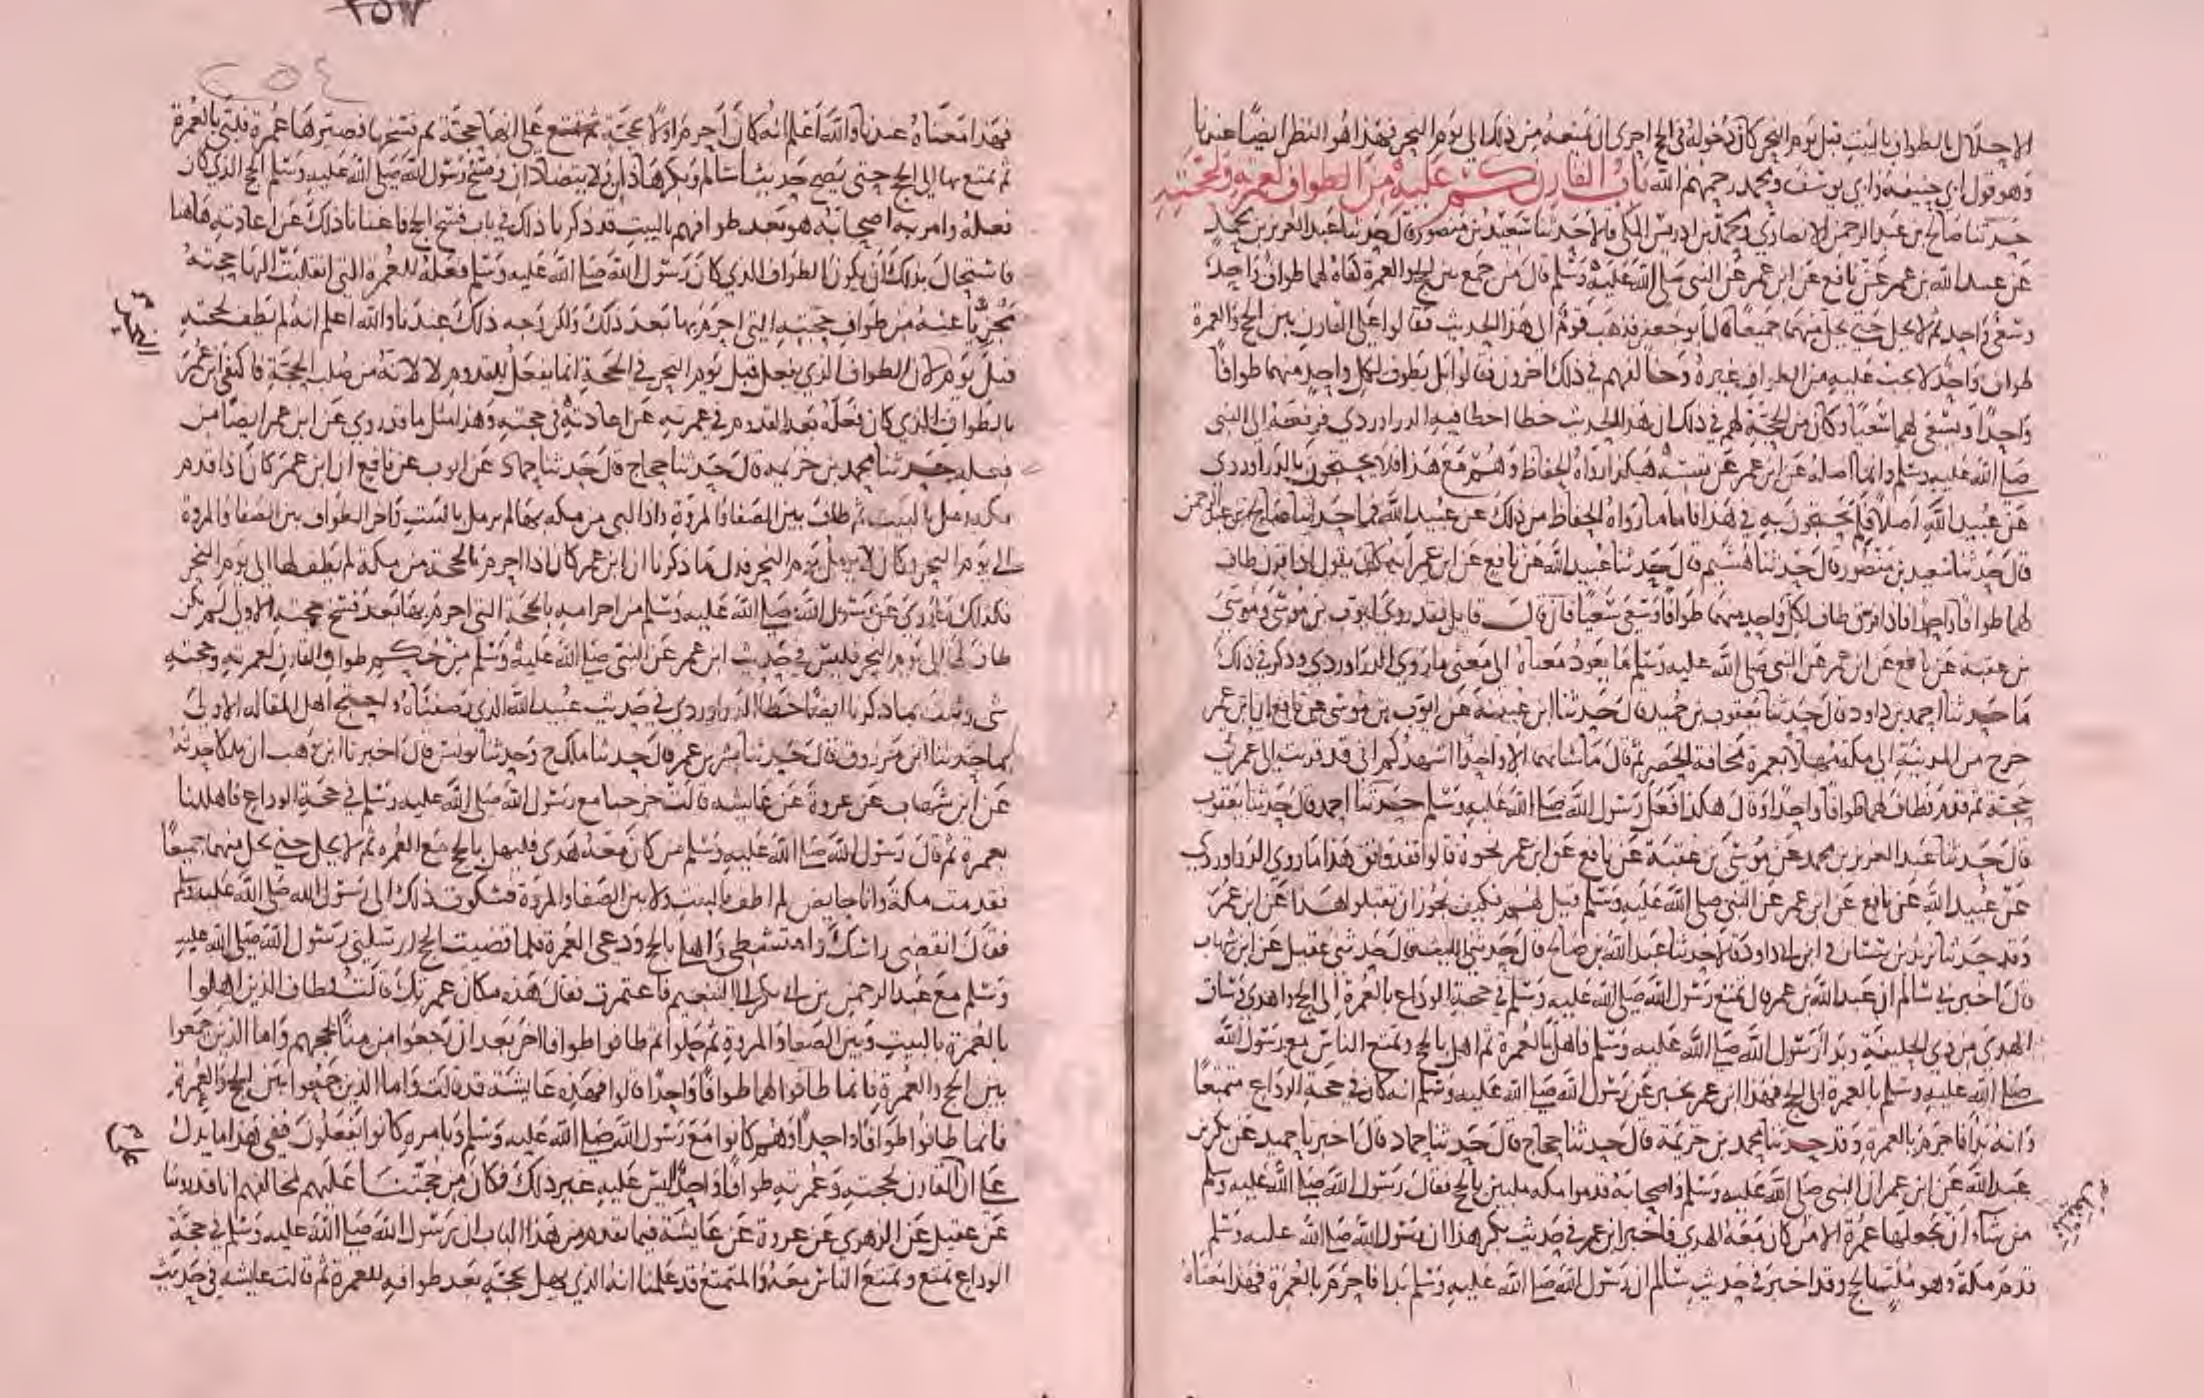 الاحلال بالطواف بالبيت قبل يوم النحر كان دخوله في الحج احرى ان يمنعه من ذلك الى يوم النحر فهذا هو النظر ايضا عندنا
وهو قول ابي حنيفة وابي يوسف ومحمد رحمهم الله باب القارن كم عليه من الطواف لعمرته ولحجته
حدثنا صالح بن عبد الرحمن الانصاري ومحمد بن ادريس المكي قالا حدثنا سعيد بن منصور قال حدثنا عبد العزيز بن محمد
عن عبيد الله بن عمر عن نافع عن ابن عمر عن النبي صلى الله عليه وسلم قال من جمع بين الحج والعمرة كفاه لهما طواف واحد
وسعى واحد ثم لا يحل حتى يحل منهما جميعا قال ابو جعفر فذهب قوم الى هذا الحديث فقالوا على القارن بين الحج والعمرة
طواف واحد لا يجب عليه من الطواف غيره وخالفهم في ذلك اخرون فقالوا بل يطوف لكل واحد منهما طوافا
واحدا ويسعى لهما سعيا وكان من الحجة لهم في ذلك ان هذا الحديث خطا اخطا فيه الدراوردي فرفعه الى النبي
صلى الله عليه وسلم وانما اصله عن ابن عمر عن نفسه هكذا رواه الحفاظ وهم مع هذا فلا يحتجون بالدراوردي
عن عبيد الله اصلا فلم يحتجون به في هذا فاما ما رواه الحفاظ من ذلك عن عبيد الله فما حدثنا صالح بن عبد الرحمن
قال حدثنا سعيد بن منصور قال حدثنا هشيم قال حدثنا عبيد الله عن نافع عن ابن عمر انه كان يقول اذا قرن طاف
لهما طوافا واحدا فاذا فرق طاف لكل واحد منهما طوافا وسعى سعيا فان قال قايل فقد روى ايوب بن موسى وموسى
بن عقبة عن نافع عن ابن عمر عن النبي صلى الله عليه وسلم ما يعود معناه الى معنى ما روى الدراوردي وذكر في ذلك
ما حدثنا احمد بن داود قال حدثنا يعقوب بن حميد قال حدثنا ابن عيينة عن ايوب بن موسى عن نافع ان ابن عمر
خرج من المدينة الى مكة مهلا بعمرة مخافة الحصر ثم قال ما شانهما الا واحدا اشهدكم اني قد قرنت الى عمرتي
حجة ثم قدم فطاف لهما طوافا واحدا وقال هكذا فعل رسول الله صلى الله عليه وسلم حدثنا احمد قال حدثنا يعقوب
قال حدثنا عبد العزيز بن محمد عن موسى بن عقبة عن نافع عن ابن عمر نحوه قالوا فقد وافق هذا ما روى الدراوردي
عن عبيد الله عن نافع عن ابن عمر عن النبي صلى الله عليه وسلم قيل لهم فكيف يجوز ان تقبلوا هذا عن ابن عمر
وقد حدثنا يزيد بن سنان وابن ابي داود قالا حدثنا عبد الله بن صالح قال حدثني الليث قال حدثني عقيل عن ابن شهاب
قال اخبرني سالم ان عبد الله بن عمر قال تمتع رسول الله صلى الله عليه وسلم في حجة الوداع بالعمرة الى الحج واهدى وساق
الهدى من ذي الحليفة وبدا رسول الله صلى الله عليه وسلم فاهل بالعمرة ثم اهل بالحج وتمتع الناس مع رسول الله
صلى الله عليه وسلم بالعمرة الى الحج فهذا ابن عمر يخبر عن رسول الله صلى الله عليه وسلم انه كان في حجة الوداع متمتعا
وانه بدا فاحرم بالعمرة وقد حدثنا محمد بن خزيمة قال حدثنا حجاج قال حدثنا حماد قال اخبرنا حميد عن بكر بن
عبد الله عن ابن عمر ان النبي صلى الله عليه وسلم واصحابه قدموا مكه ملبين بالحج فقال رسول الله صلى الله عليه وسلم
من شاء ان يجعلها عمرة الا من كان معه الهدي فاخبر ابن عمر في حديث بكر هذا ان رسول الله صلى الله عليه وسلم
قدم مكة وهو ملبي بالحج وقد اخبر في حديث سالم ان رسول الله صلى الله عليه وسلم بدا فاحرم بالعمرة فهذا معناه
٢٥٤
فهذا معناه عندنا والله اعلم انه كان احرم اولا بحجة على انها حجة ثم فسخها فصيرها عمرة فلبى بالعمرة
ثم تمتع بها الى الحج حتى يصح حديث سالم وبكر هذان ولا يتضادان وفسخ رسول الله صلى الله عليه وسلم الحج الذي كان
فعله وامر به اصحابه هو بعد طوافهم بالبيت قد ذكرنا ذلك في باب فسخ الحج فاغنانا ذلك عن اعادته هاهنا
فاستحال بذلك ان يكون الطواف الذي كان رسول الله صلى الله عليه وسلم فعله للعمرة التي انقلبت اليها حجته
مجزيا عنه من طواف حجته التي احرم بها بعد ذلك ولكن وجه ذلك عندنا والله اعلم انه لم يطف لحجته
قبل يوم لان الطواف الذي يفعل قبل يوم النحر في الحجة انما يفعل للقدوم لا لانه من صلب الحجة فاكتفى ابن عمر
بالطواف الذي كان فعله بعد القدوم في عمرته عن اعادته في حجته وهذا مثل ما قد روي عن ابن عمر ايضا من
فعله حدثنا محمد بن خزيمة قال حدثنا حجاج قال حدثنا حماد عن ايوب عن نافع ان ابن عمر كان اذا قدم
مكه رمل بالبيت ثم طاف بين الصفا والمروة واذا لبى من مكه بها لم يرمل بالبيت واخر الطواف بين الصفا والمروة
الى يوم النحر وكان لا يرمل يوم النحر فدل ما ذكرنا ان ابن عمر كان اذا احرم بالحجة من مكة لم يطف لها الى يوم النحر
فكذلك ما روي عن رسول الله صلى الله عليه وسلم من احرامه بالحجة التي احرم بها بعد فسخ حجته الاولى لم يكن
طاف لها الى يوم النحر فليس في حديث ابن عمر عن النبي صلى الله عليه وسلم من حكم طواف القارن لعمرته وحجته
شي وثبت بما ذكرنا ايضا خطا الدراوردي في حديث عبيد الله الذي وصفناه واحتج اهل المقالة الاولى
بما حدثنا ابن مرزوق قال حدثنا بشر بن عمر قال حدثنا ملك ح وحدثنا يونس قال اخبرنا ابن وهب ان ملكا حدثه
عن ابن شهاب عن عروة عن عايشه قالت خرجنا مع رسول الله صلى الله عليه وسلم في حجة الوداع فاهللنا
بعمرة ثم قال رسول الله صلى الله عليه وسلم من كان معه هدي فليهل بالحج مع العمرة ثم لا يحل حتى يحل منهما جميعا
فقدمت مكة وانا حايض لم اطف بالبيت ولا بين الصفا والمروة فشكوت ذلك الى رسول الله صلى الله عليه وسلم
فقال انقضي راسك وامتشطي واهلي بالحج ودعي العمرة فلما قضيت الحج ارسلني رسول الله صلى الله عليه
وسلم مع عبد الرحمن بن ابي بكر الى التنعيم فاعتمرت فقال هذه مكان عمرتك قالت فطاف الذين اهلوا
بالعمرة بالبيت وبين الصفا والمروة ثم حلوا ثم طافوا طوافا اخر بعد ان رجعوا من منا لحجهم واما الذين جمعوا
بين الحج والعمرة فانما طافوا لهما طوافا واحدا قالوا فهذه عايشة قد قالت واما الذين جمعوا بين الحج والعمرة
فانما طافوا طوافا واحدا وهم كانوا مع رسول الله صلى الله عليه وسلم وبامره كانوا يفعلون ففي هذا ما يدل
على ان القارن لحجته وعمرته طوافا واحدا ليس عليه غير ذلك فكان من حجتنا عليهم لمخالفهم انا قد روينا
عن عقيل عن الزهري عن عروة عن عايشة فيما تقدم من هذا الباب ان رسول الله صلى الله عليه وسلم في حجة
الوداع تمتع وتمتع الناس معه والمتمتع قد علمنا انه الذي يهل بحجة بعد طوافه للعمرة ثم قالت عايشه في حديث